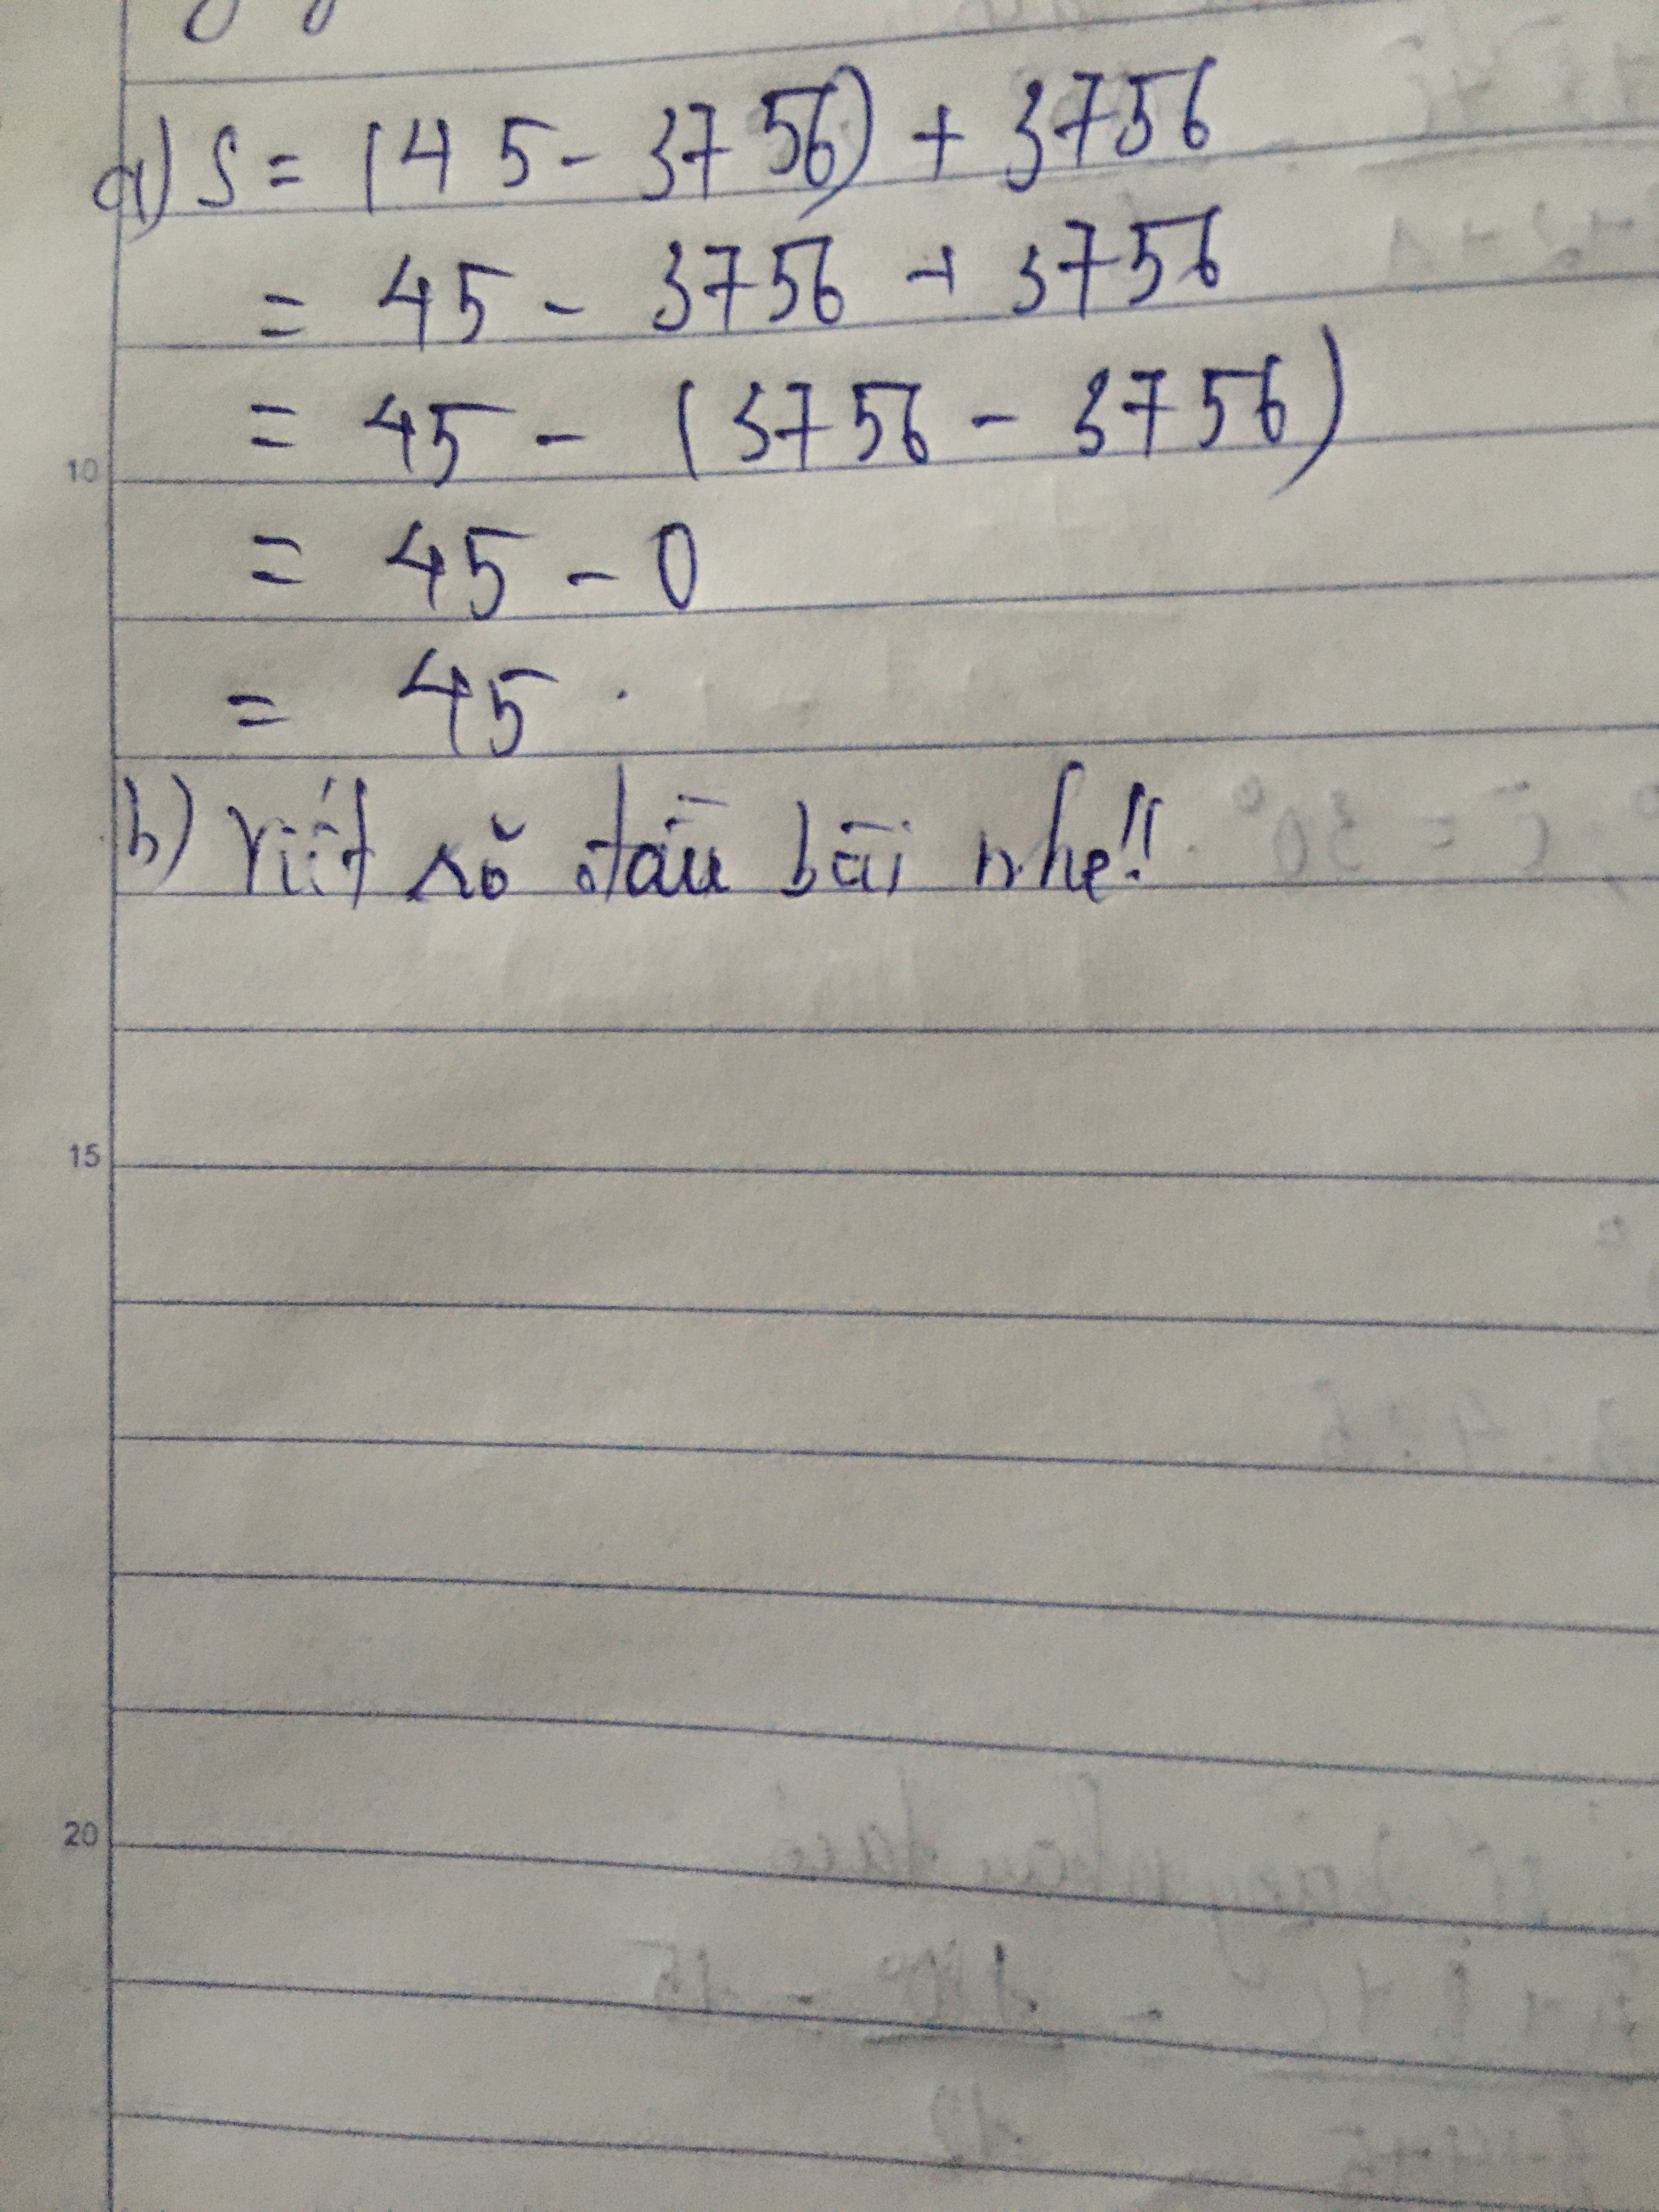 a) S = (45 - 3756) + 3756
= 45 - 3756 + 3756
= 45 - (3756 - 3756)
10
= 45 - 0
= 45.
b) Viết rõ đầu bài nhé!!
15
20